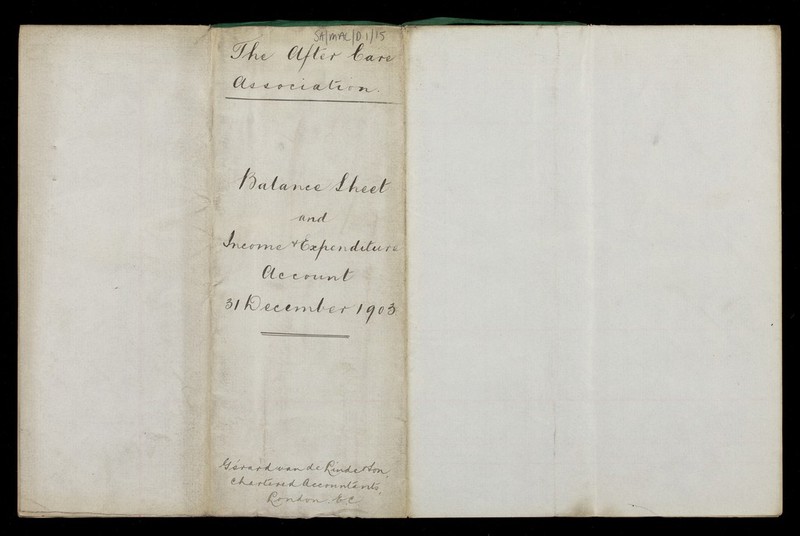 SA/MAC/D1/15
The After Care
Association.
Balance Sheet
and
Income & Expenditure
Account
31 December 1903
Gérard van de Linde & Son,
Chartered Accountants,
London. E C